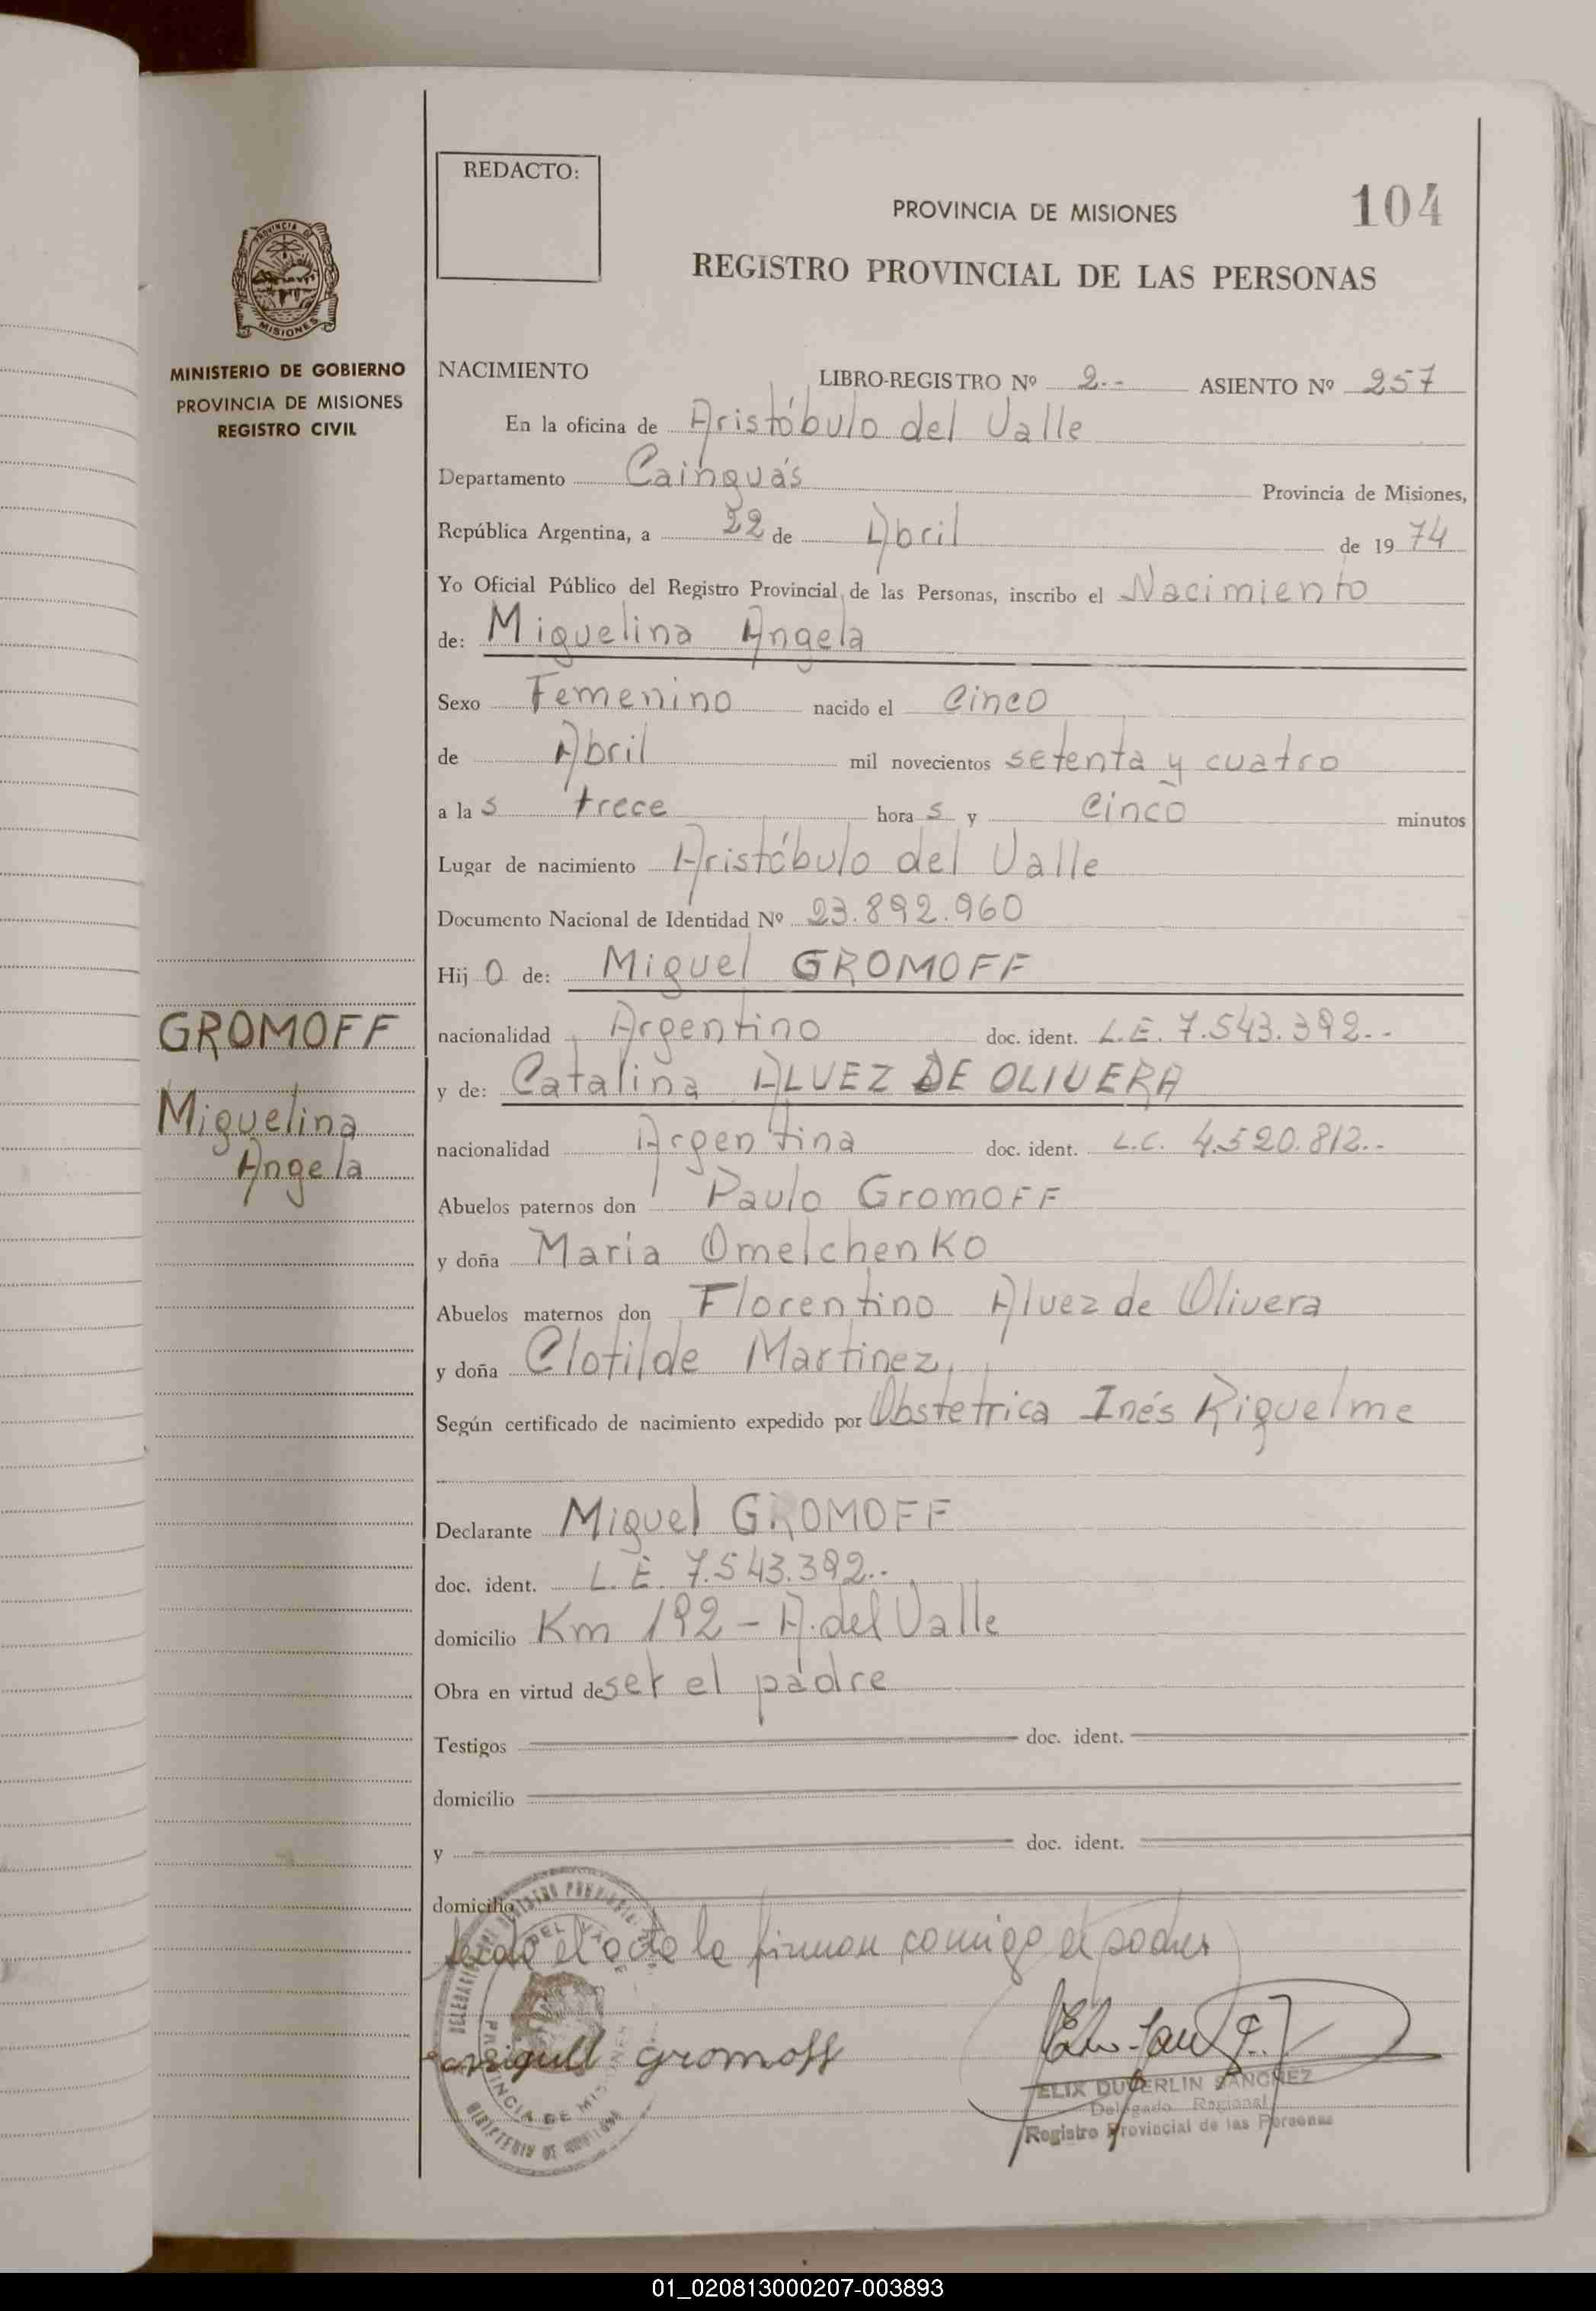 REDACTO:
PROVINCIA DE MISIONES
104
REGISTRO PROVINCIAL DE LAS PERSONAS
PROVINCIA DE
MISIONES
MINISTERIO DE GOBIERNO
PROVINCIA DE MISIONES
REGISTRO CIVIL
GROMOFF
Miguelina
Angela
NACIMIENTO LIBRO-REGISTRO Nº 2.- ASIENTO Nº 257
En la oficina de Aristóbulo del Valle
Departamento Cainguás Provincia de Misiones,
República Argentina, a 22 de Abril de 1974
Yo Oficial Público del Registro Provincial de las Personas, inscribo el Nacimiento
de: Miguelina Angela
Sexo Femenino nacido el Cinco
de Abril mil novecientos setenta y cuatro
a las trece horas y Cinco minutos
Lugar de nacimiento Aristóbulo del Valle
Documento Nacional de Identidad Nº 23.892.960
Hij O de: Miguel GROMOFF
nacionalidad Argentino doc. ident. L.E. 7.543.392.-
y de: Catalina ALVEZ DE OLIVERA
nacionalidad Argentina doc. ident. L.C. 4.520.812.-
Abuelos paternos don Paulo GromoFF
y doña María OmelchenKo
Abuelos maternos don Florentino Alvez de Olivera
y doña Clotilde Martinez,
Según certificado de nacimiento expedido por Obstetrica Inés Riquelme
Declarante Miguel GROMOFF
doc. ident. L.E. 7.543.392.-
domicilio Km 192 - A. del Valle
Obra en virtud de ser el padre
Testigos doc. ident.
domicilio
y doc. ident.
domicilio
leido el acta la firman comigo el padre
miguel gromoff
FELIX DUVERLIN SANCHEZ
Delegado Regional
Registro Provincial de las Personas
PROVINCIA DE MISIONES
01_020813000207-003893